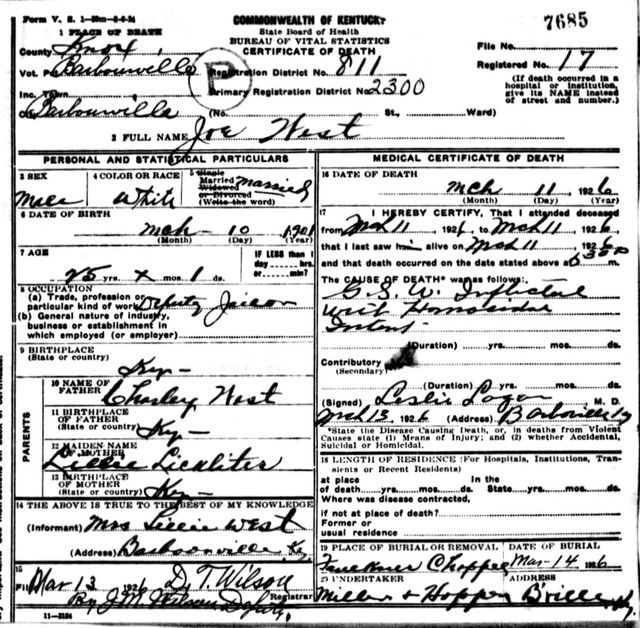 Form V. S. 1
COMMONWEALTH OF KENTUCKY
7685
1 PLACE OF DEATH
State Board of Health
BUREAU OF VITAL STATISTICS
CERTIFICATE OF DEATH
File No.
County Knox
Registered No. 17
Vot. P Barbourville
Registration District No. 811
(If death occurred in a hospital or institution, give its NAME instead of street and number.)
Inc. Town
P
Primary Registration District No. 2300
Barbourville
(No. St., Ward)
2 FULL NAME Joe West
PERSONAL AND STATISTICAL PARTICULARS
3 SEX
Male
4 COLOR OR RACE
White
5 Single
Married
Widowed
or Divorced
(Write the word)
Married
6 DATE OF BIRTH
Mch 10 1901
(Month) (Day) (Year)
7 AGE
25 yrs. x mos. 1 ds.
IF LESS than 1
day hrs.
or min.?
8 OCCUPATION
(a) Trade, profession or
particular kind of work Deputy Jailor
(b) General nature of industry,
business or establishment in
which employed (or employer)
9 BIRTHPLACE
(State or country)
Ky-
PARENTS
10 NAME OF
FATHER
Charley West
11 BIRTHPLACE
OF FATHER
(State or country)
Ky-
12 MAIDEN NAME
OF MOTHER
Lillie Lickliter
13 BIRTHPLACE
OF MOTHER
(State or country)
Ky-
14 THE ABOVE IS TRUE TO THE BEST OF MY KNOWLEDGE
(Informant) Mrs Lillie West
(Address) Barbourville Ky
15
Filed Mar 13 1926 D. T. Wilson
Registrar
By J. M. Wilson Deputy
MEDICAL CERTIFICATE OF DEATH
16 DATE OF DEATH
Mch 11 1926
(Month) (Day) (Year)
17 I HEREBY CERTIFY, That I attended deceased
from Mch 11 1926 to Mch 11 1926
that I last saw him alive on Mch 11 1926
and that death occurred on the date stated above at 530 P m.
The CAUSE OF DEATH* was as follows:
G. S. W. Inflicted
with Homicidal
Intent
(Duration) yrs. mos. ds.
Contributory
(Secondary)
(Duration) yrs. mos. ds.
(Signed) Leslie Logan M. D.
Mch 13, 1926 (Address) Barbourville Ky
*State the Disease Causing Death, or, in deaths from Violent
Causes state (1) Means of Injury; and (2) whether Accidental,
Suicidal or Homicidal.
18 LENGTH OF RESIDENCE (For Hospitals, Institutions, Transients or Recent Residents)
at place In the
of death yrs. mos. ds. State yrs. mos. ds.
Where was disease contracted,
if not at place of death?
Former or
usual residence
19 PLACE OF BURIAL OR REMOVAL
DATE OF BURIAL
Faulkner Mar-14 1926
20 UNDERTAKER
ADDRESS
Miller + Hopper B'ville Ky.